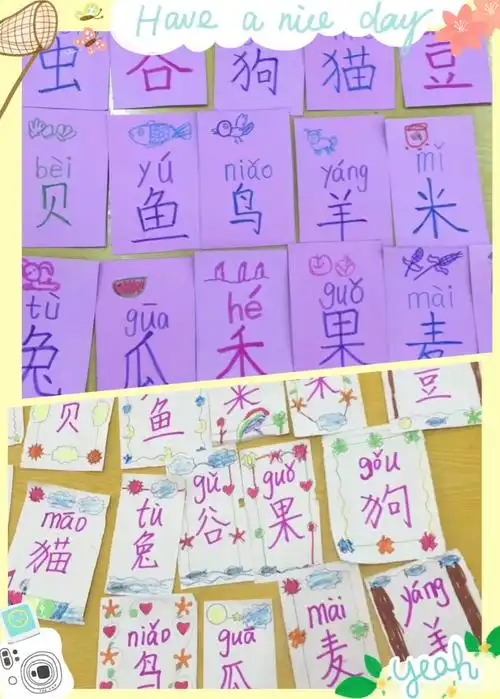 Have a nice day
虫 谷 狗 猫 豆
bèi yú niǎo yáng mǐ
贝 鱼 鸟 羊 米
tù guā hé guǒ mài
兔 瓜 禾 果 麦
贝 鱼 米 豆
māo tù gǔ guǒ gǒu
猫 兔 谷 果 狗
niǎo guā mài yáng
鸟 瓜 麦 羊
yeah